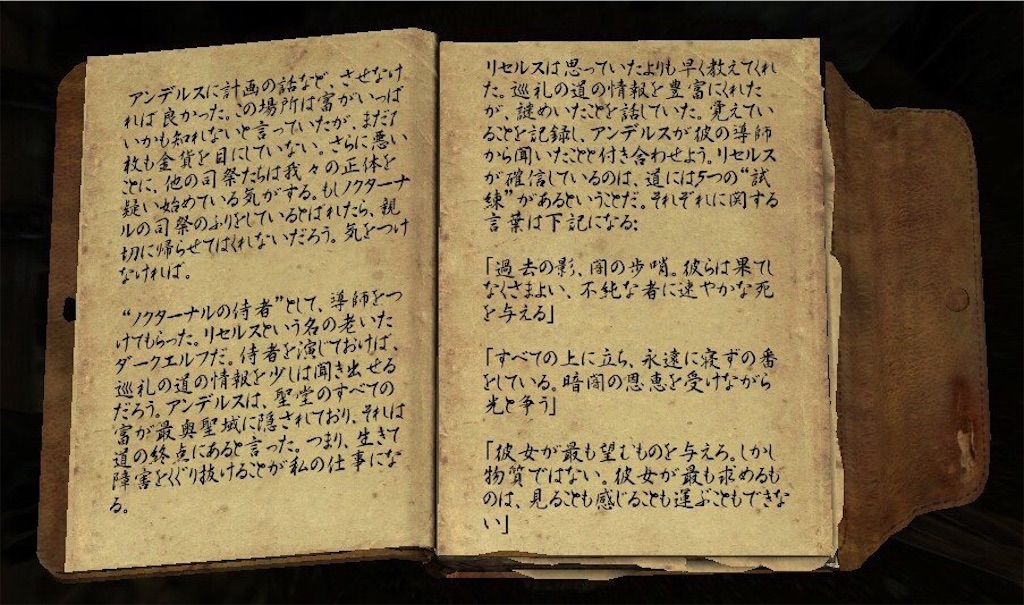 アンデルスに計画の話など、させなけ
れば良かった。この場所は富がいっぱ
いかも知れないと言っていたが、まだ1
枚も金貨を目にしていない。さらに悪い
ことに、他の司祭たちは我々の正体を
疑い始めている気がする。もしノクターナ
ルの司祭のふりをしているとばれたら、親
切に帰らせてはくれないだろう。気をつけ
なければ。
“ノクターナルの侍者”として、導師をつ
けてもらった。リセルスという名の老いた
ダークエルフだ。侍者を演じておけば、
巡礼の道の情報を少しは聞き出せる
だろう。アンデルスは、聖堂のすべての
富が最奥聖域に隠されており、それは
道の終点にあると言った。つまり、生きて
障害をくぐり抜けることが私の仕事にな
る。
リセルスは思っていたよりも早く教えてくれ
た。巡礼の道の情報を豊富にくれた
が、謎めいたことを話していた。覚えてい
ることを記録し、アンデルスが彼の導師
から聞いたことと付き合わせよう。リセルス
が確信しているのは、道には5つの“試
練”があるということだ。それぞれに関する
言葉は下記になる:
「過去の影、闇の歩哨。彼らは果てし
なくさまよい、不純な者に速やかな死
を与える」
「すべての上に立ち、永遠に寝ずの番
をしている。暗闇の恩恵を受けながら
光と争う」
「彼女が最も望むものを与えろ。しかし
物質ではない。彼女が最も求めるも
のは、見ることも感じることも運ぶこともできな
い」